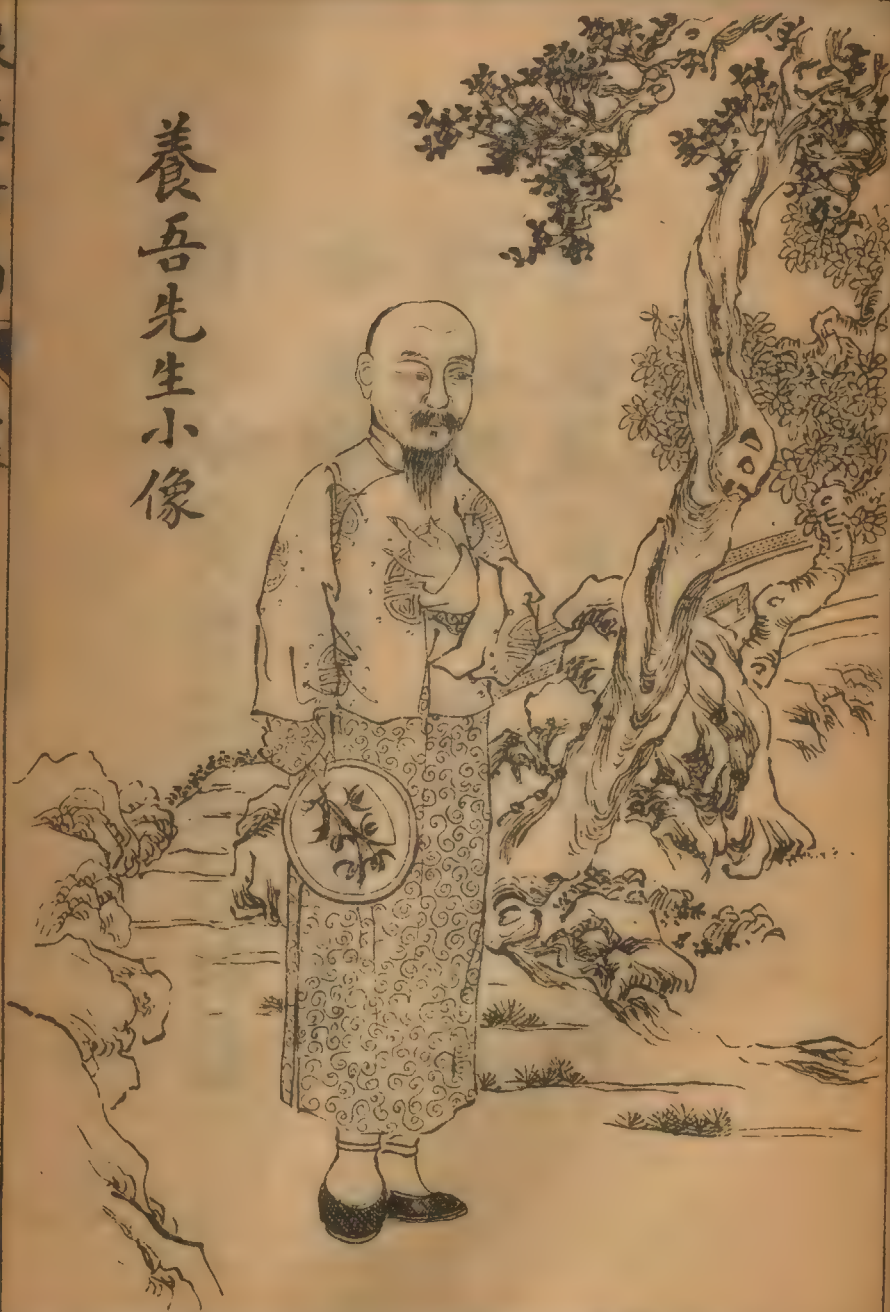 養吾先生小像